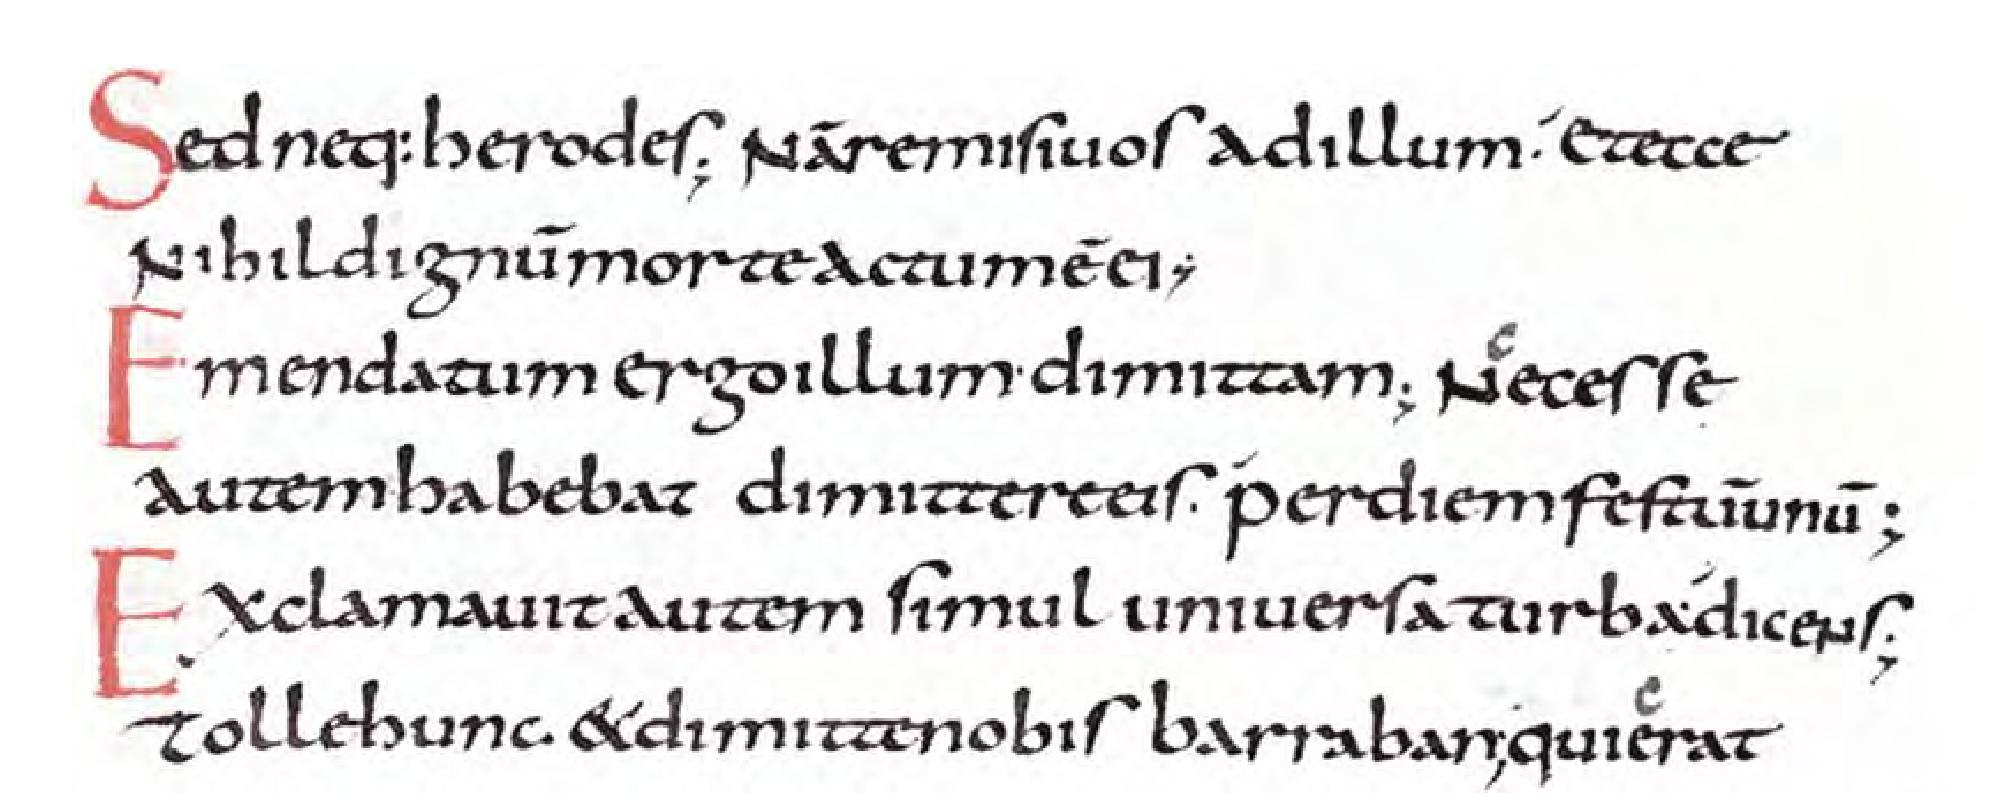 Sed neq: herodeſ; Nā remiſi uoſ ad illum· Et ecce
Nihil dignū morte actum ē ei;
Emendatum ergo illum· dimittam; Neceſſe
autem habebat dimittere eiſ· per diem feſtū unū;
Exclamauit autem ſimul uniuerſa turba· dicenſ;
Tolle hunc· & dimitte nobiſ barraban; qui erat